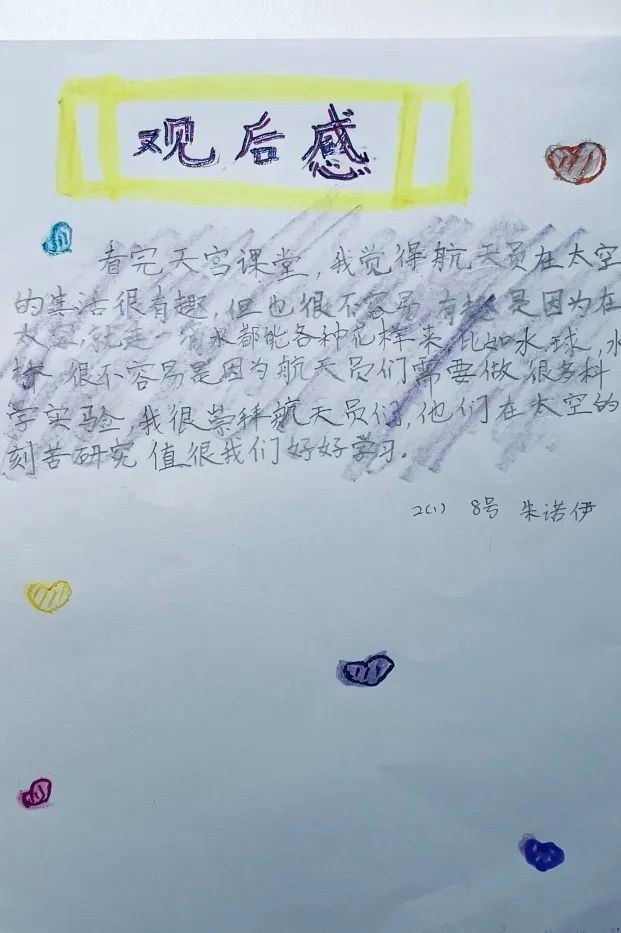 观后感
看完天宫课堂，我觉得航天员在太空
的生活很有趣，但也很不容易有趣是因为在
太空，就连一滴水都能各种花样来，比如水球，水
很不容易是因为航天员们需要做很多科
学实验。我很崇拜航天员们，他们在太空的
刻苦研究值很我们好好学习。
2(1) 8号 朱诺伊